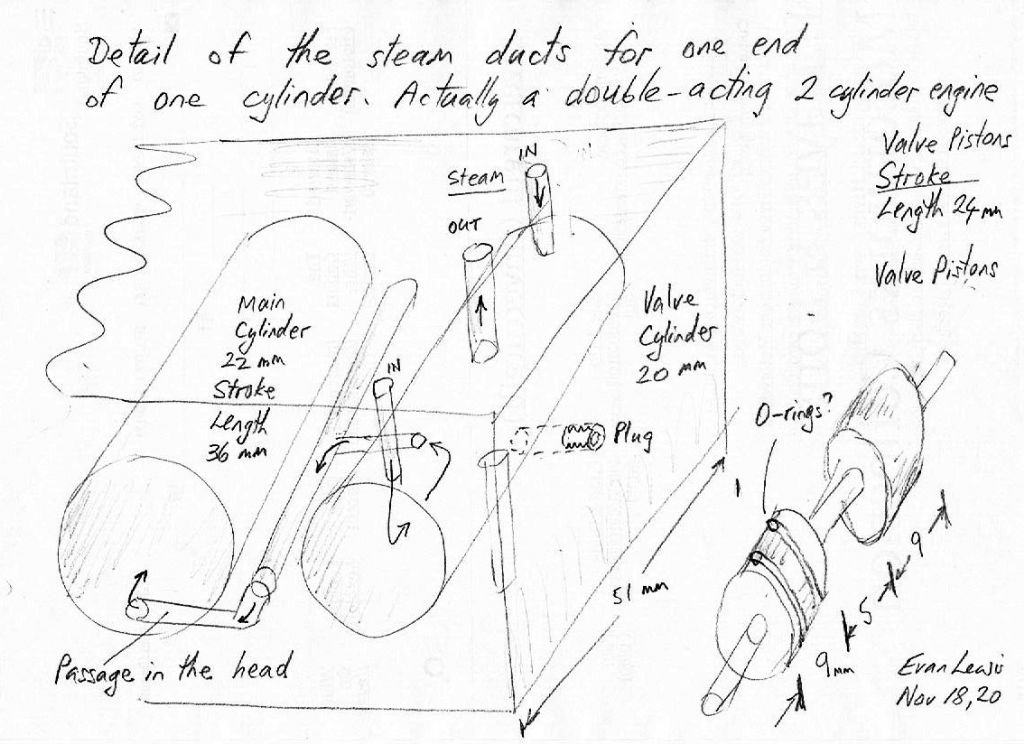 Detail of the steam ducts for one end
of one cylinder. Actually a double-acting 2 cylinder engine
Valve Pistons
Stroke
Length 24mm
Valve Pistons
IN
Steam
OUT
Main
Cylinder
22 mm
Stroke
Length
36 mm
IN
Valve
Cylinder
20 mm
Plug
O-rings?
51 mm
9
5
9mm
Passage in the head
Evan Lewis
Nov 18, 20